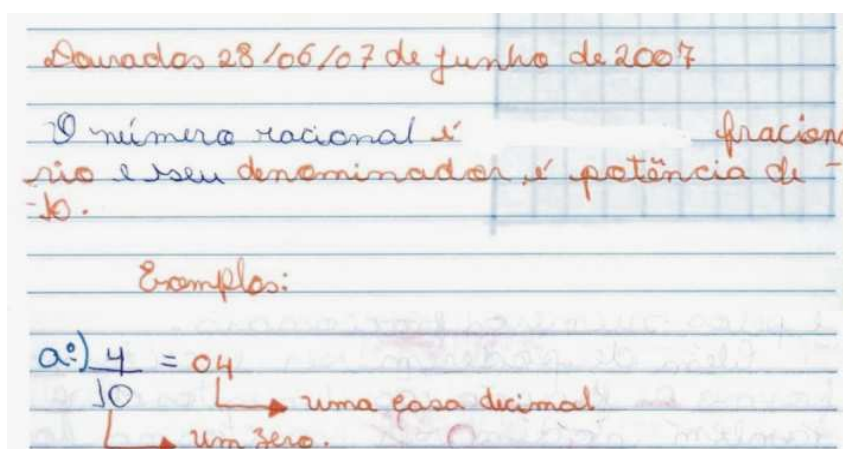 Dourados 28/06/07 de junho de 2007
O número racional é fracioná
rio e seu denominador é potência de -
-10.
Exemplos:
a:) 4 = 04
10
uma casa decimal
um zero.